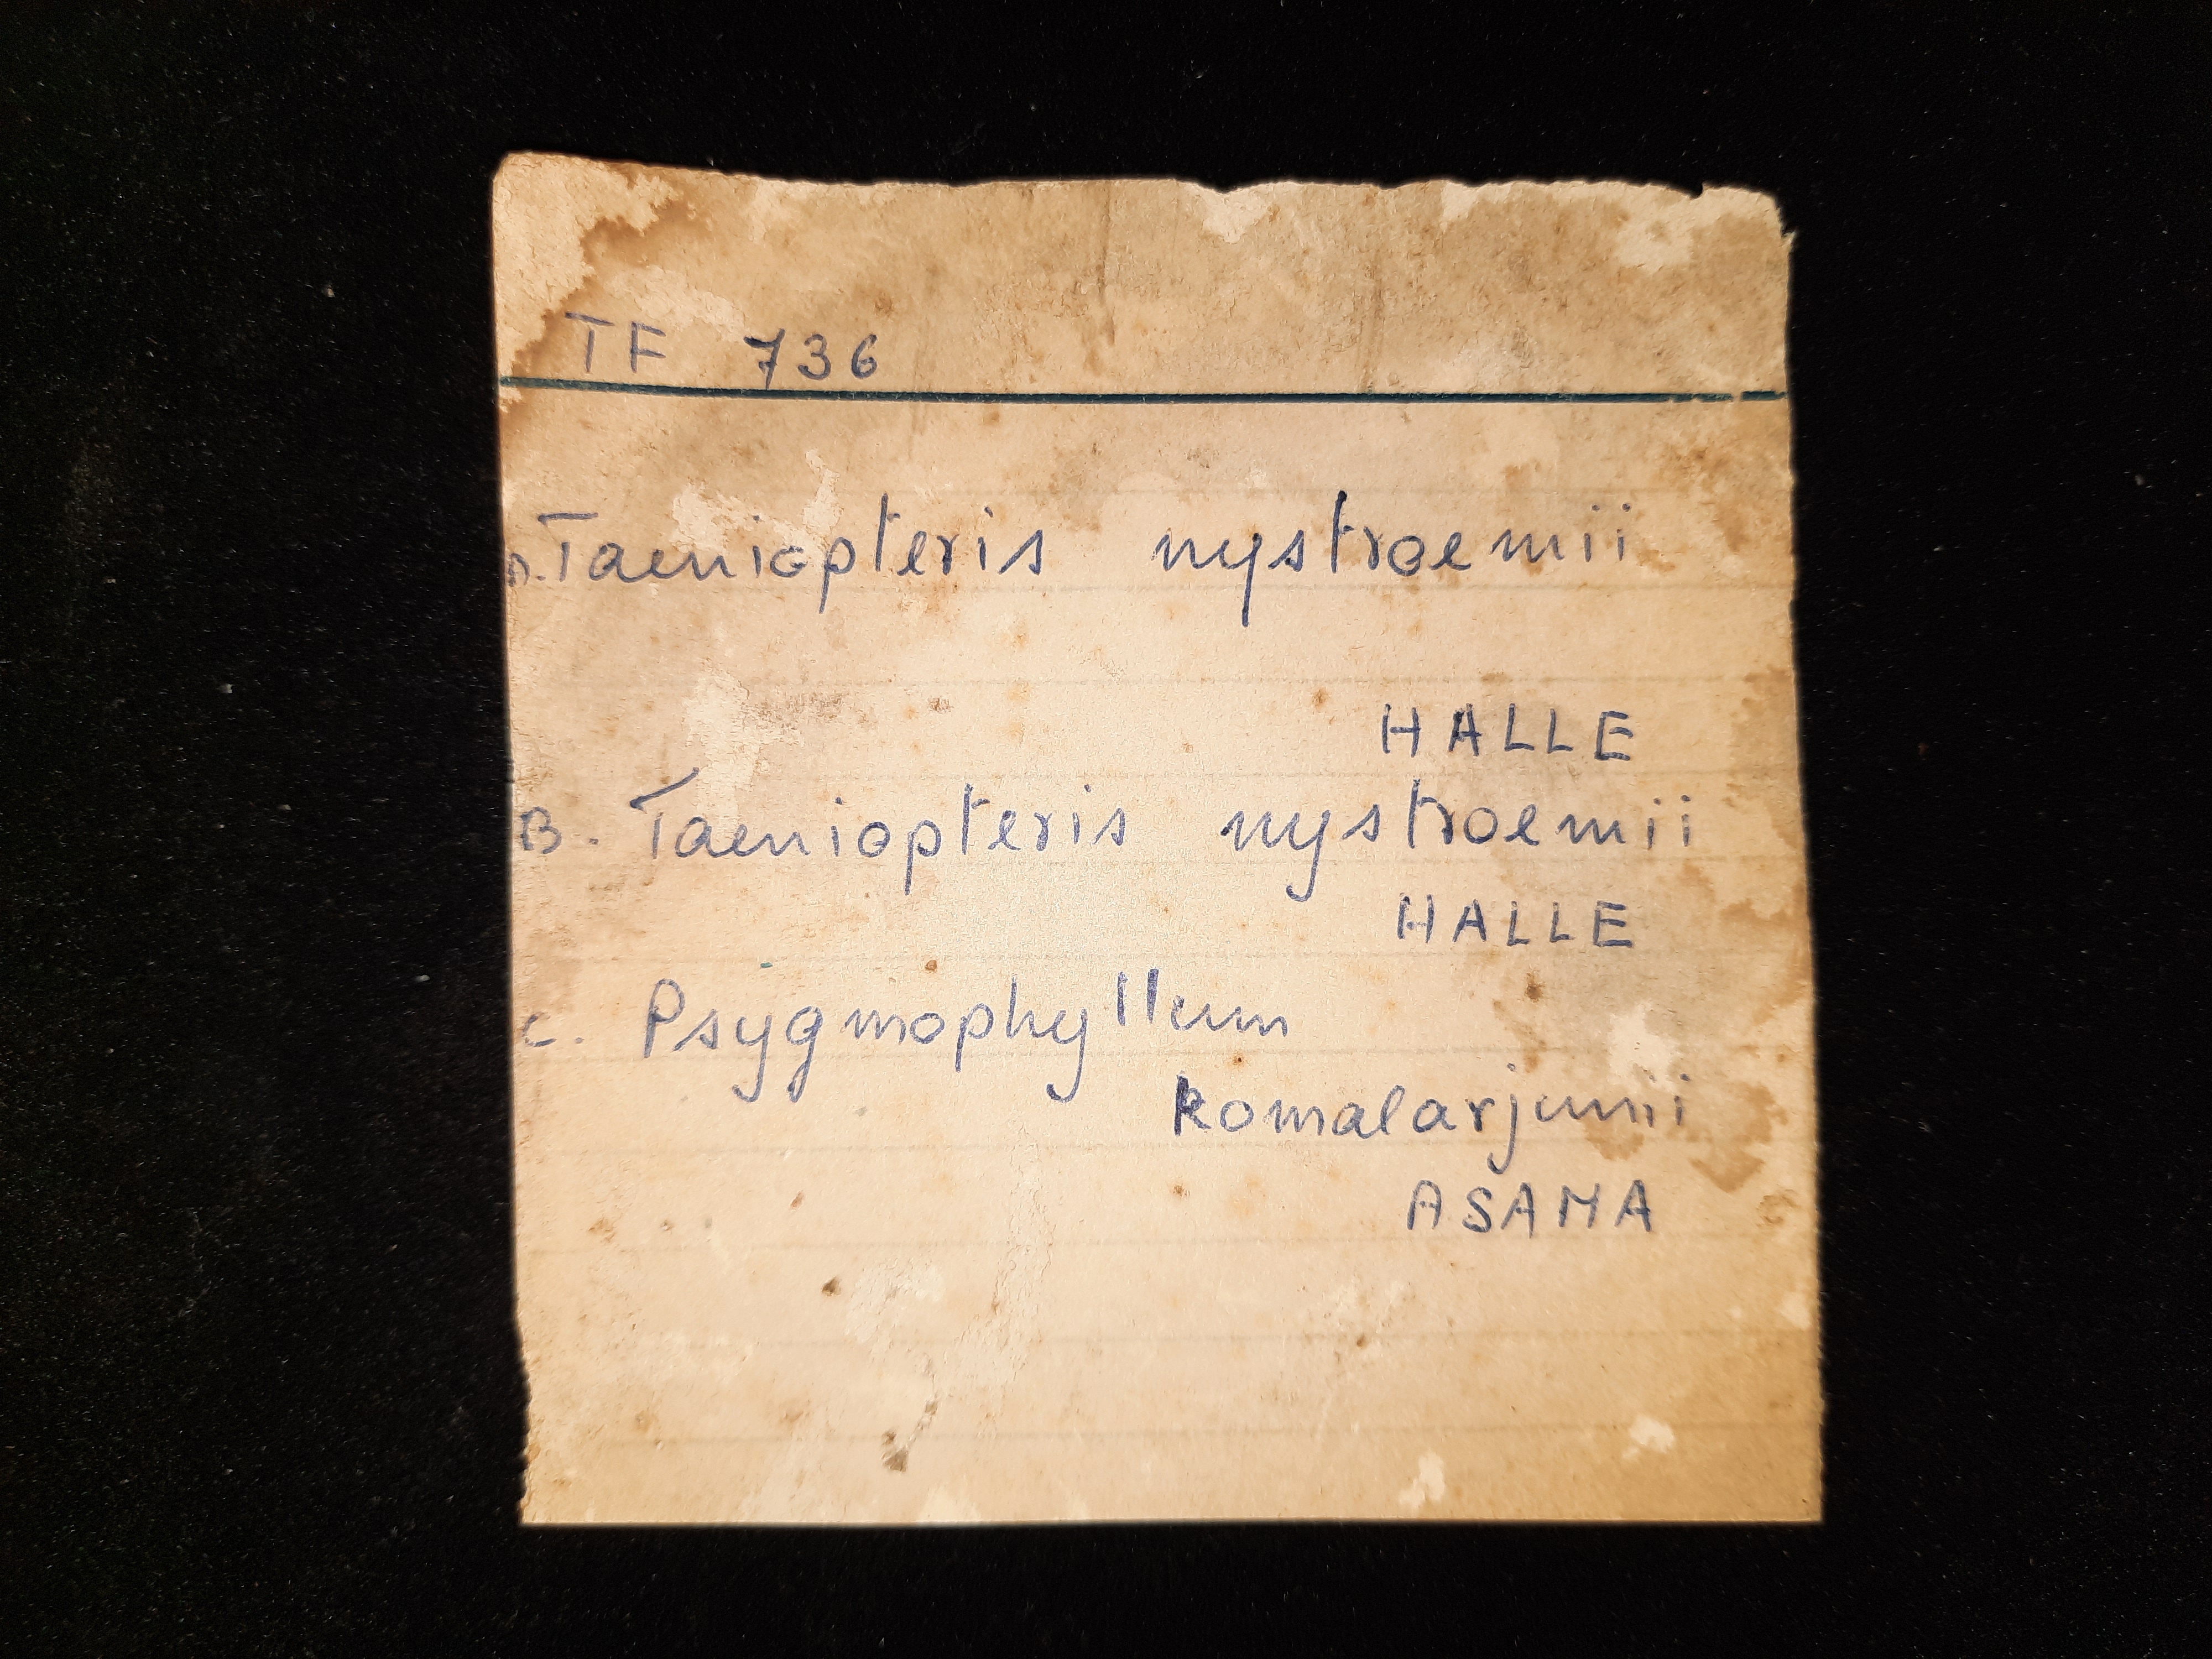 TF 736
A. Taeniopteris nystroemii
HALLE
B. Taeniopteris nystroemii
HALLE
C. Psygmophyllum
komalarjunii
ASAMA